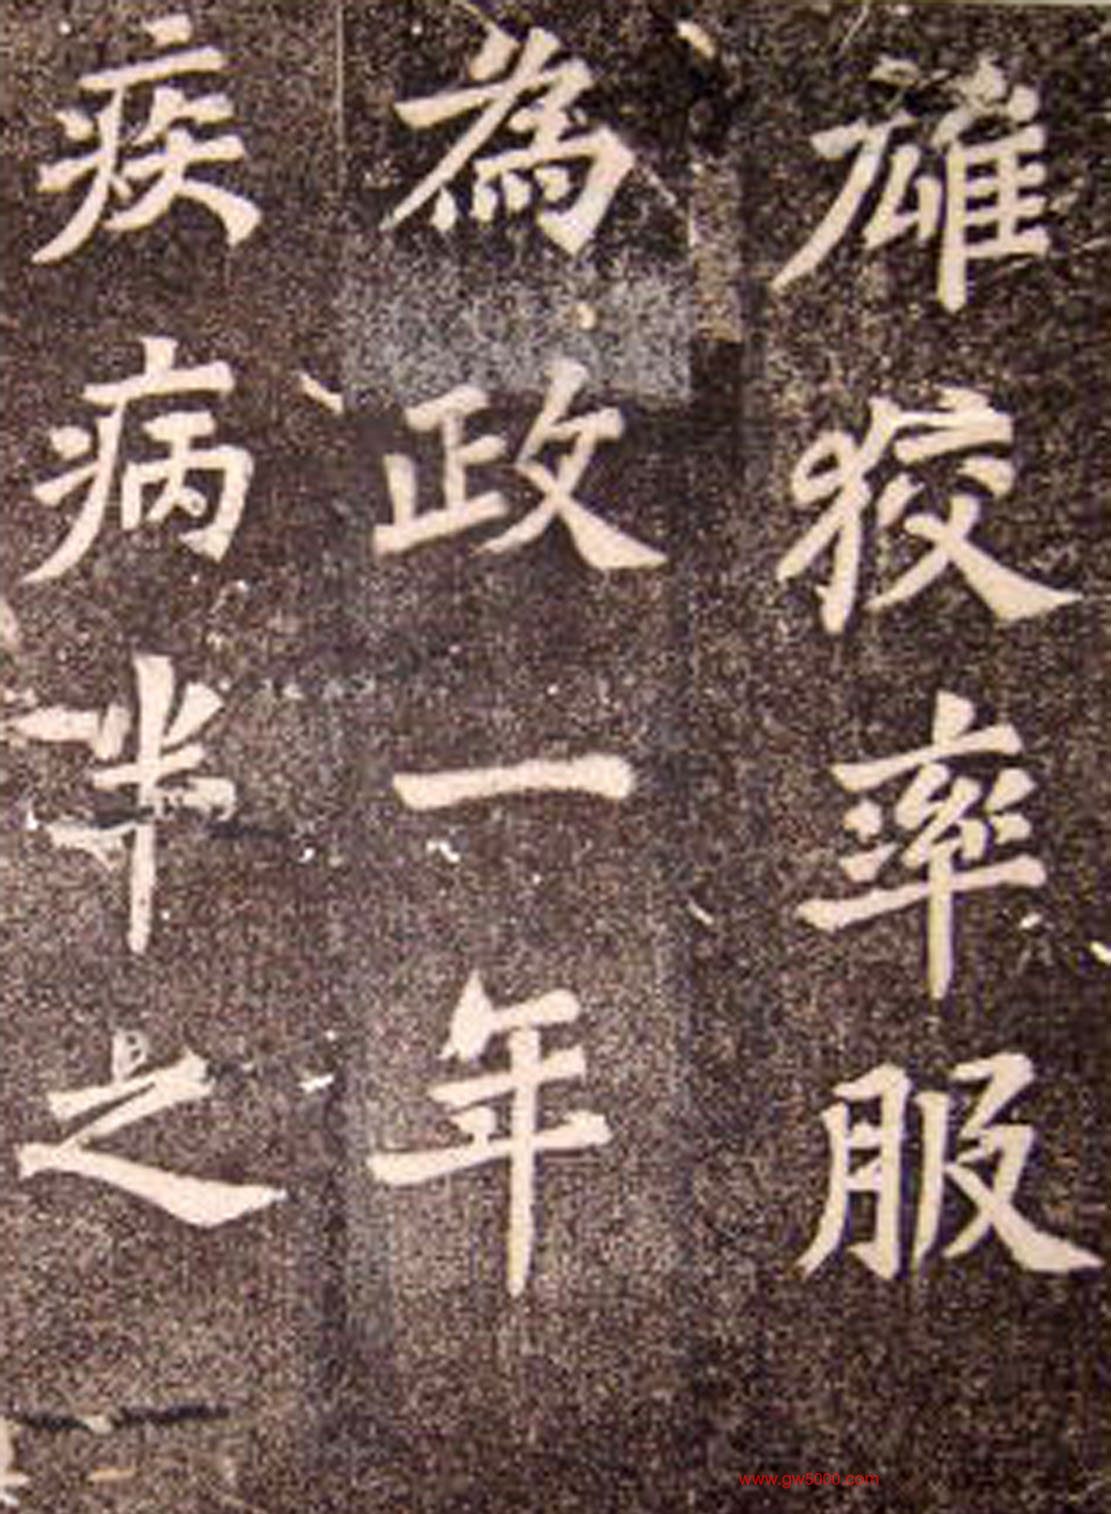 雄狡率服
為政一年
疾病半之
www.gw5000.com